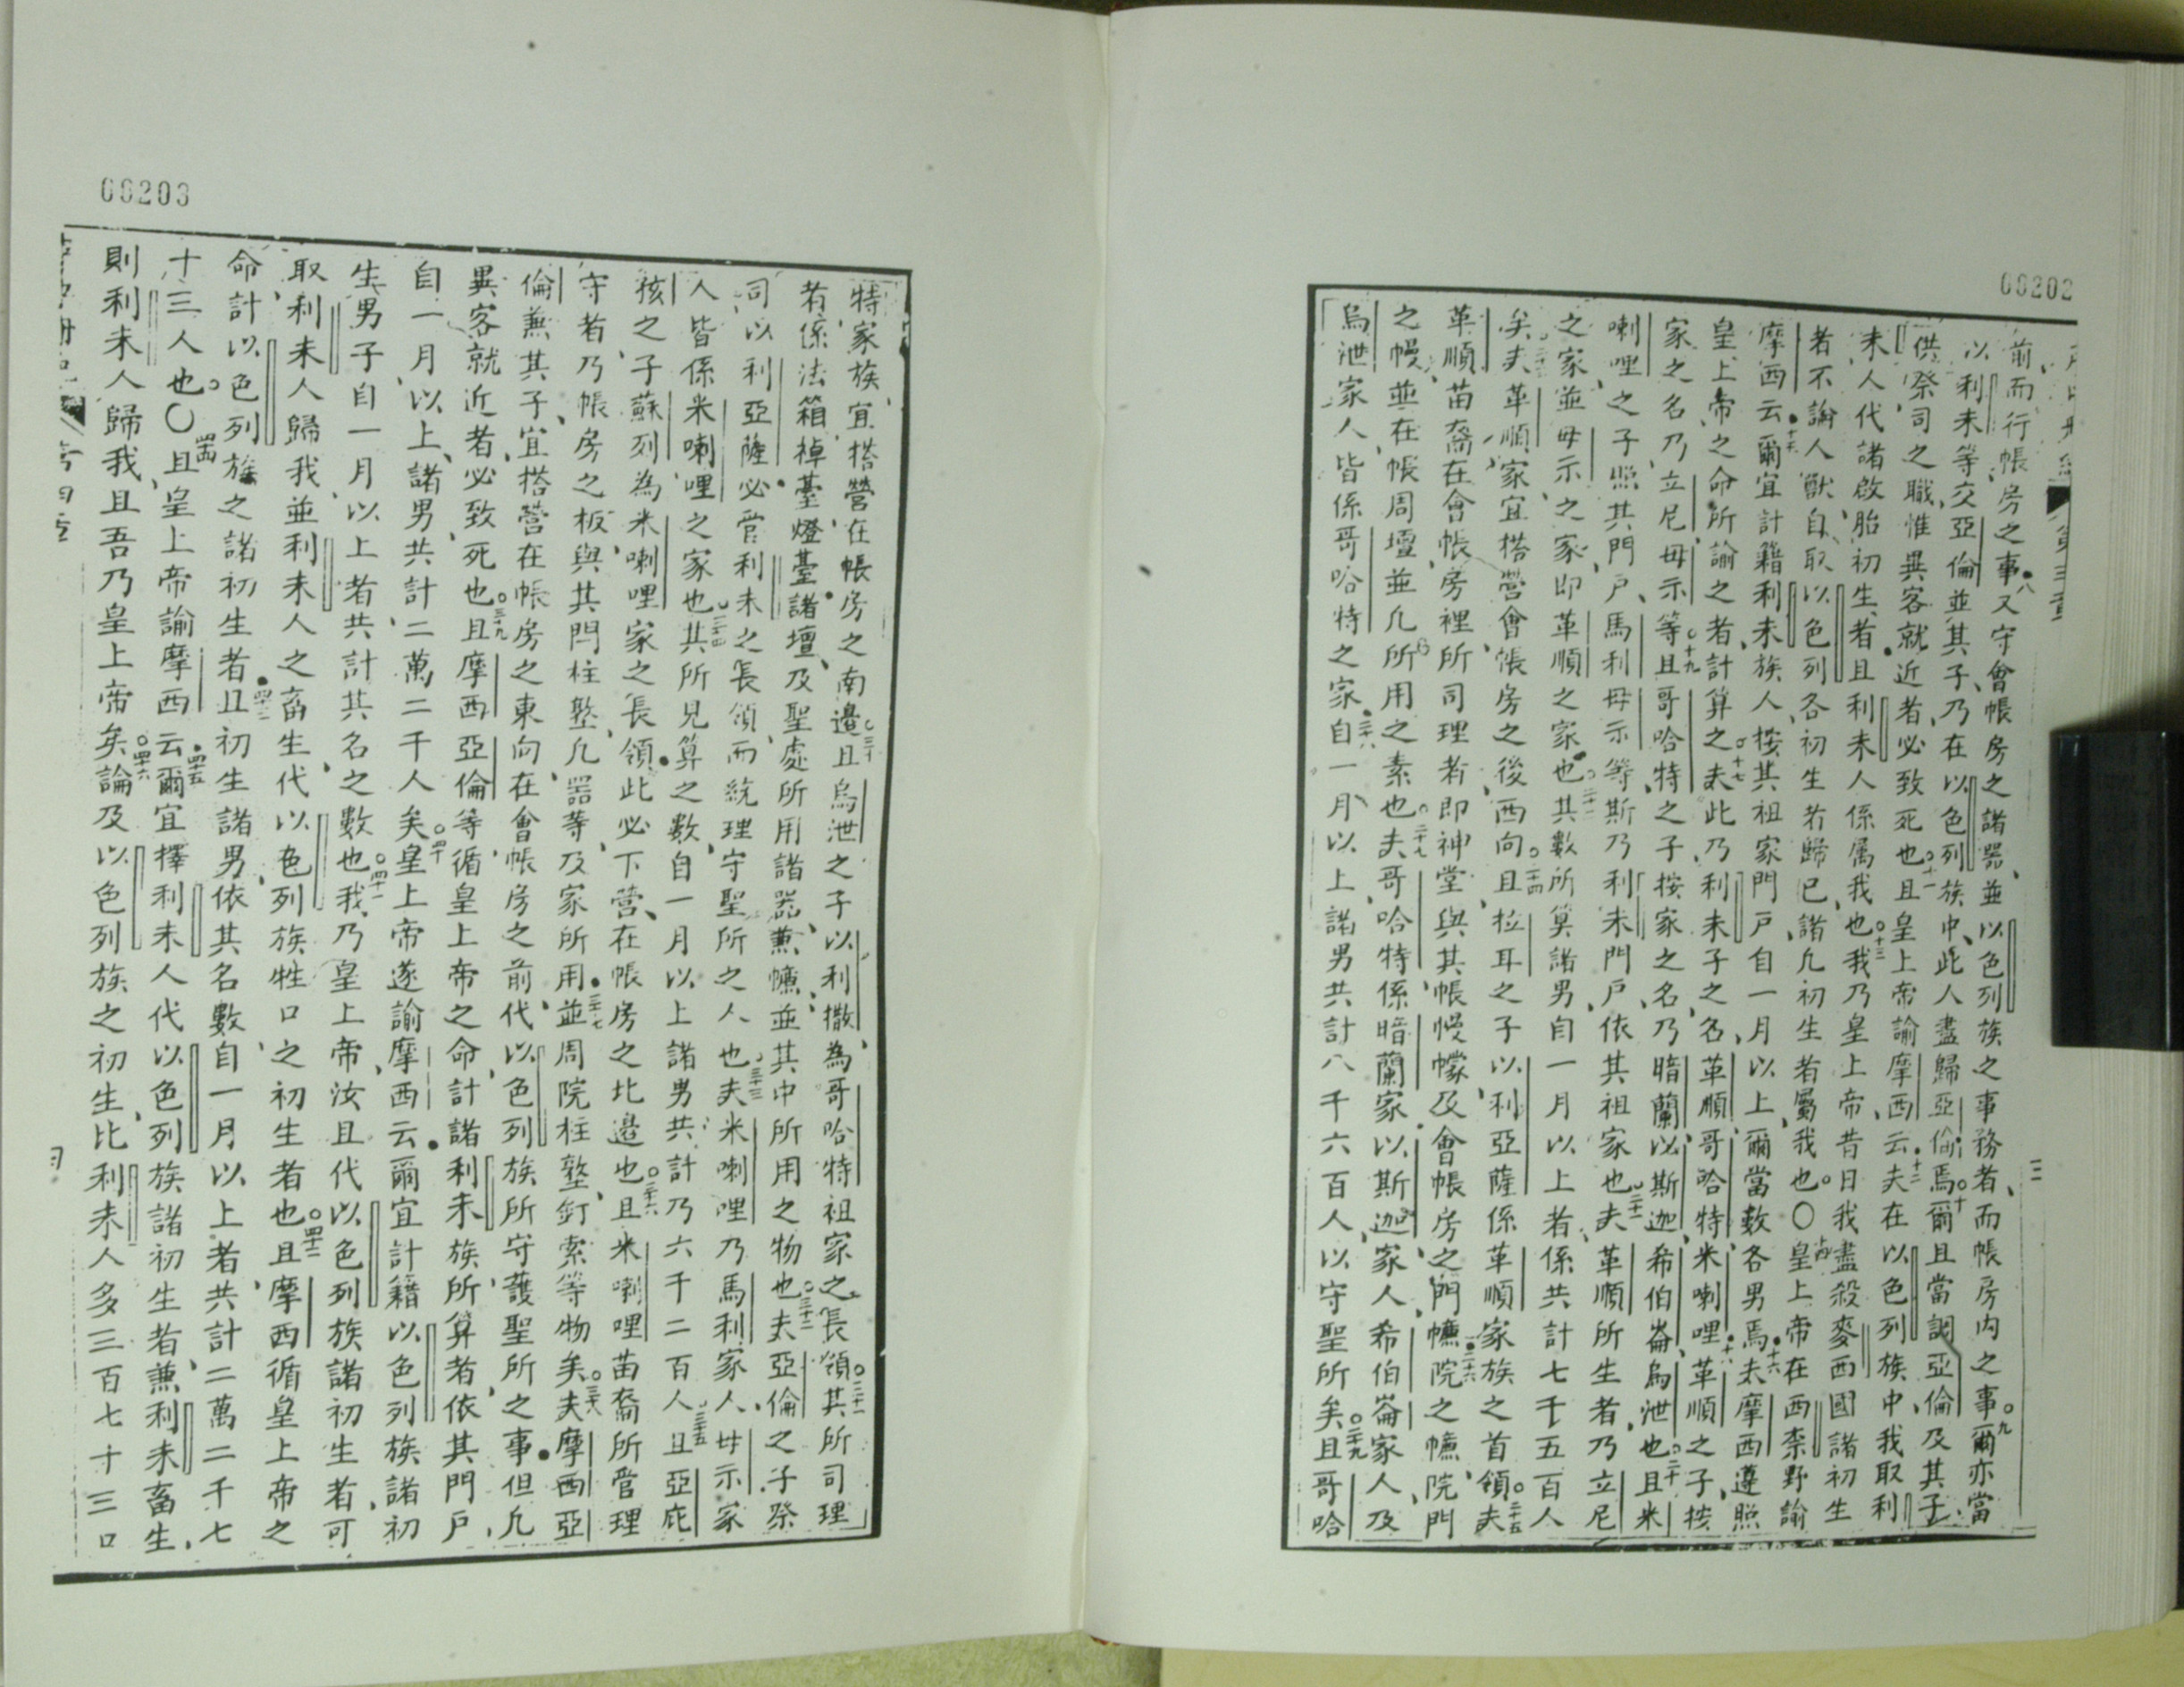 00202
前而行帳房之事八又守會帳房之諸器並以色列族之事務者而帳房內之事九爾亦當
以利未等交亞倫並其子乃在以色列族中此人盡歸亞倫焉十爾且當調亞倫及其子
供祭司之職惟異客就近者必致死也十一且皇上帝諭摩西云十二夫在以色列族中我取利
未人代諸啟胎初生者且利未人係屬我也十三我乃皇上帝昔日我盡殺麥西國諸初生
者不論人獸自取以色列各初生者歸已諸凡初生者屬我也〇十四皇上帝在西柰野諭
摩西云十五爾宜計籍利未族人按其祖家門戶自一月以上爾當數各男焉十六夫摩西遵照
皇上帝之命所諭之者計算之十七夫此乃利未子之名革順哥哈特米喇哩十八革順之子按
家之名乃立尼毋示等十九且哥哈特之子按家之名乃暗蘭以斯迦希伯崙烏泄也二十且米
喇哩之子照其門戶馬利毋示等斯乃利未門戶依其祖家也二十一夫革順所生者乃立尼
之家並毋示之家即革順之家也二十二其數所算諸男自一月以上者係共計七千五百人
矣二十三夫革順家宜搭營會帳房之後西向二十四且拉耳之子以利亞薩係革順家族之首領二十五夫
革順苗裔在會帳房裡所司理者即神堂與其帳幔幪及會帳房之門幬二十六院之幬院門
之幔並在帳周壇並凡所用之素也二十七夫哥哈特係暗蘭家以斯迦家人希伯崙家人及
烏泄家人皆係哥哈特之家二十八自一月以上諸男共計八千六百人以守聖所矣二十九且哥哈
00203
特家族宜搭營在帳房之南邊三十且烏泄之子以利撒為哥哈特祖家之長領三十一其所司理
者係法箱棹臺燈臺諸壇及聖處所用諸器兼幬並其中所用之物也三十二夫亞倫之子祭
司以利亞薩必管利未之長領而統理守聖所之人也三十三夫米喇哩乃馬利家人毋示家
人皆係米喇哩之家也三十四其所見算之數自一月以上諸男共計乃六千二百人三十五且亞庇
孩之子蘇列為米喇哩家之長領此必下營在帳房之北邊也三十六且米喇哩苗裔所管理
守者乃帳房之板與其閂柱墪凡器等及家所用三十七並周院柱墪釘索等物矣三十八夫摩西亞
倫兼其子宜搭營在帳房之東向在會帳房之前代以色列族所守護聖所之事但凡
異客就近者必致死也三十九且摩西亞倫等循皇上帝之命計諸利未族所算者依其門戶
自一月以上諸男共計二萬二千人矣四十皇上帝遂諭摩西云爾宜計籍以色列族諸初
生男子自一月以上者共計其名之數也四十一我乃皇上帝汝且代以色列族諸初生者可
取利未人歸我並利未人之畜生代以色列族牲口之初生者也四十二且摩西循皇上帝之
命計以色列族之諸初生者四十三且初生諸男依其名數自一月以上者共計二萬二千七
十三人也〇四十四且皇上帝諭摩西云四十五爾宜擇利未人代以色列族諸初生者兼利未畜生
則利未人歸我且吾乃皇上帝矣四十六論及以色列族之初生比利未人多三百七十三口